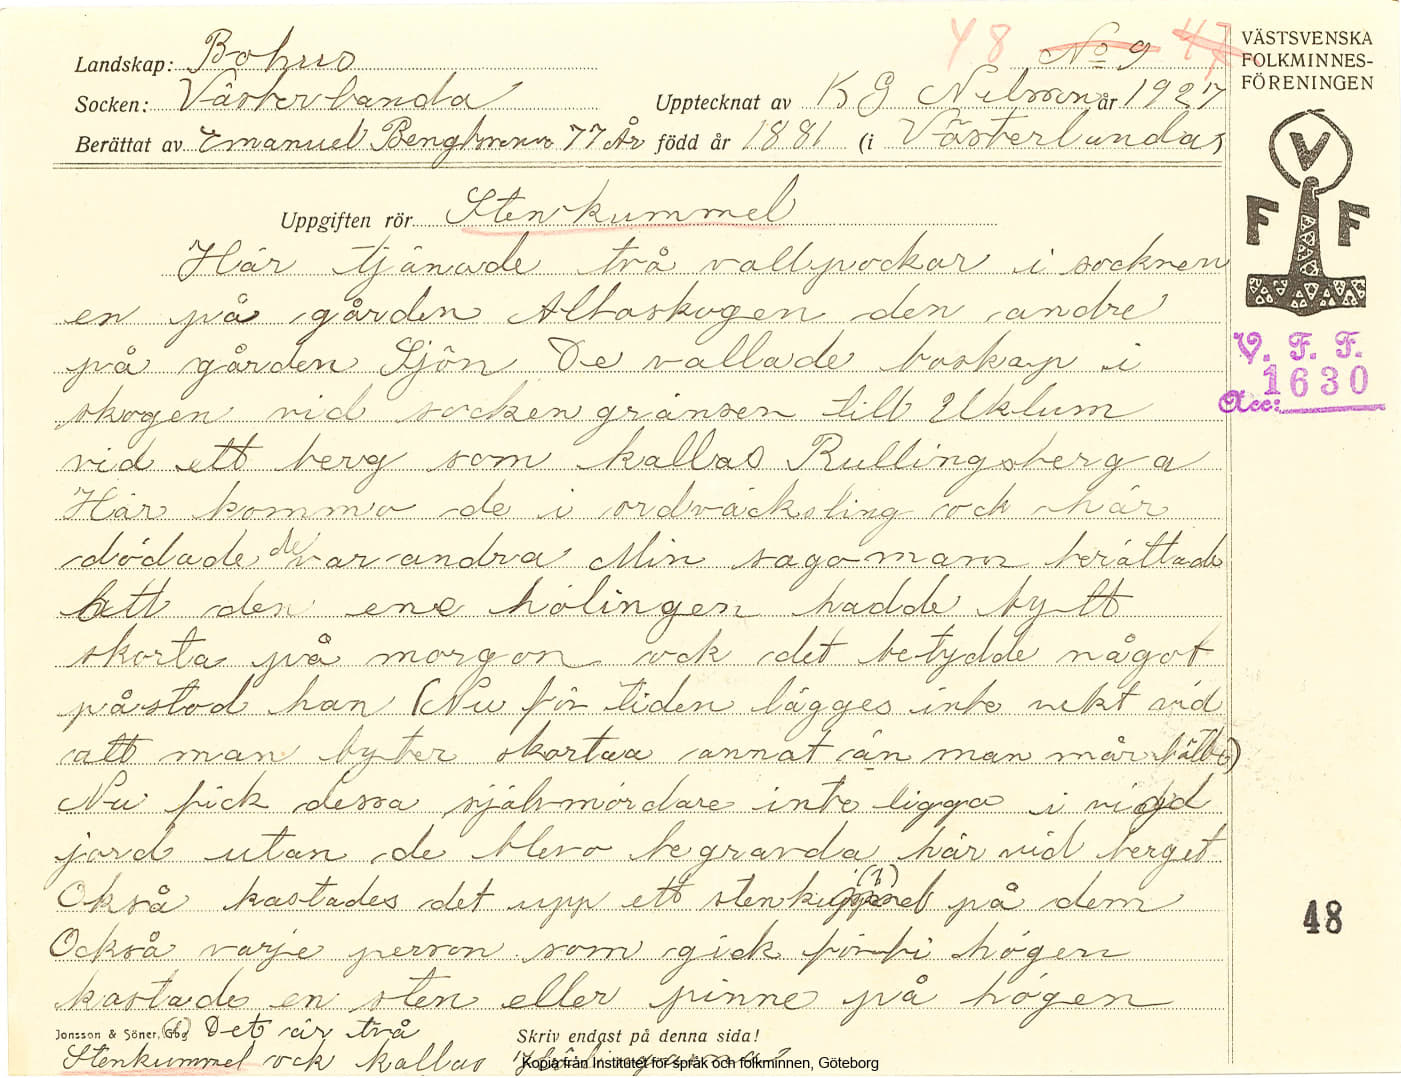 48 No 9 47
VÄSTSVENSKA
FOLKMINNES-
FÖRENINGEN
Landskap: Bohus
Socken: Västerlanda Upptecknat av K G Nilsson år 1927
Berättat av Emanuel Bengtsson 77 År född år 1881 (i Västerlandas
V
F F
Uppgiften rör Stenkummel
Här tjänade två vallpockar i socknen
en på gården Altaskogen den andre
på gården Sjön De vallade boskap i
skogen vid sockengränsen till Uklum
vid ett berg som kallas Rullingsberga
Här kommo de i ordväcksling ock här
dödade de varandra Min sagoman berättade
att den ene hölingen hadde bytt
skorta på morgon ock det betydde något
påstod han (Nu för tiden lägges inte vikt vid
att man byter skortaa annat än man mår bätte)
Nu fick dessa självmördare inte ligga i vigd
jord utan de blevo begravda här vid berget
Okså kastades det upp ett stenkummel (1) på dem
Också varje person som gick förbi högen
kastade en sten eller pinne på högen
V. F. F.
Acc: 1630
48
Jonsson & Söner, Gbg (1) Det är två Skriv endast på denna sida!
Stenkummel ock kallas
Kopia från Institutet för språk och folkminnen, Göteborg